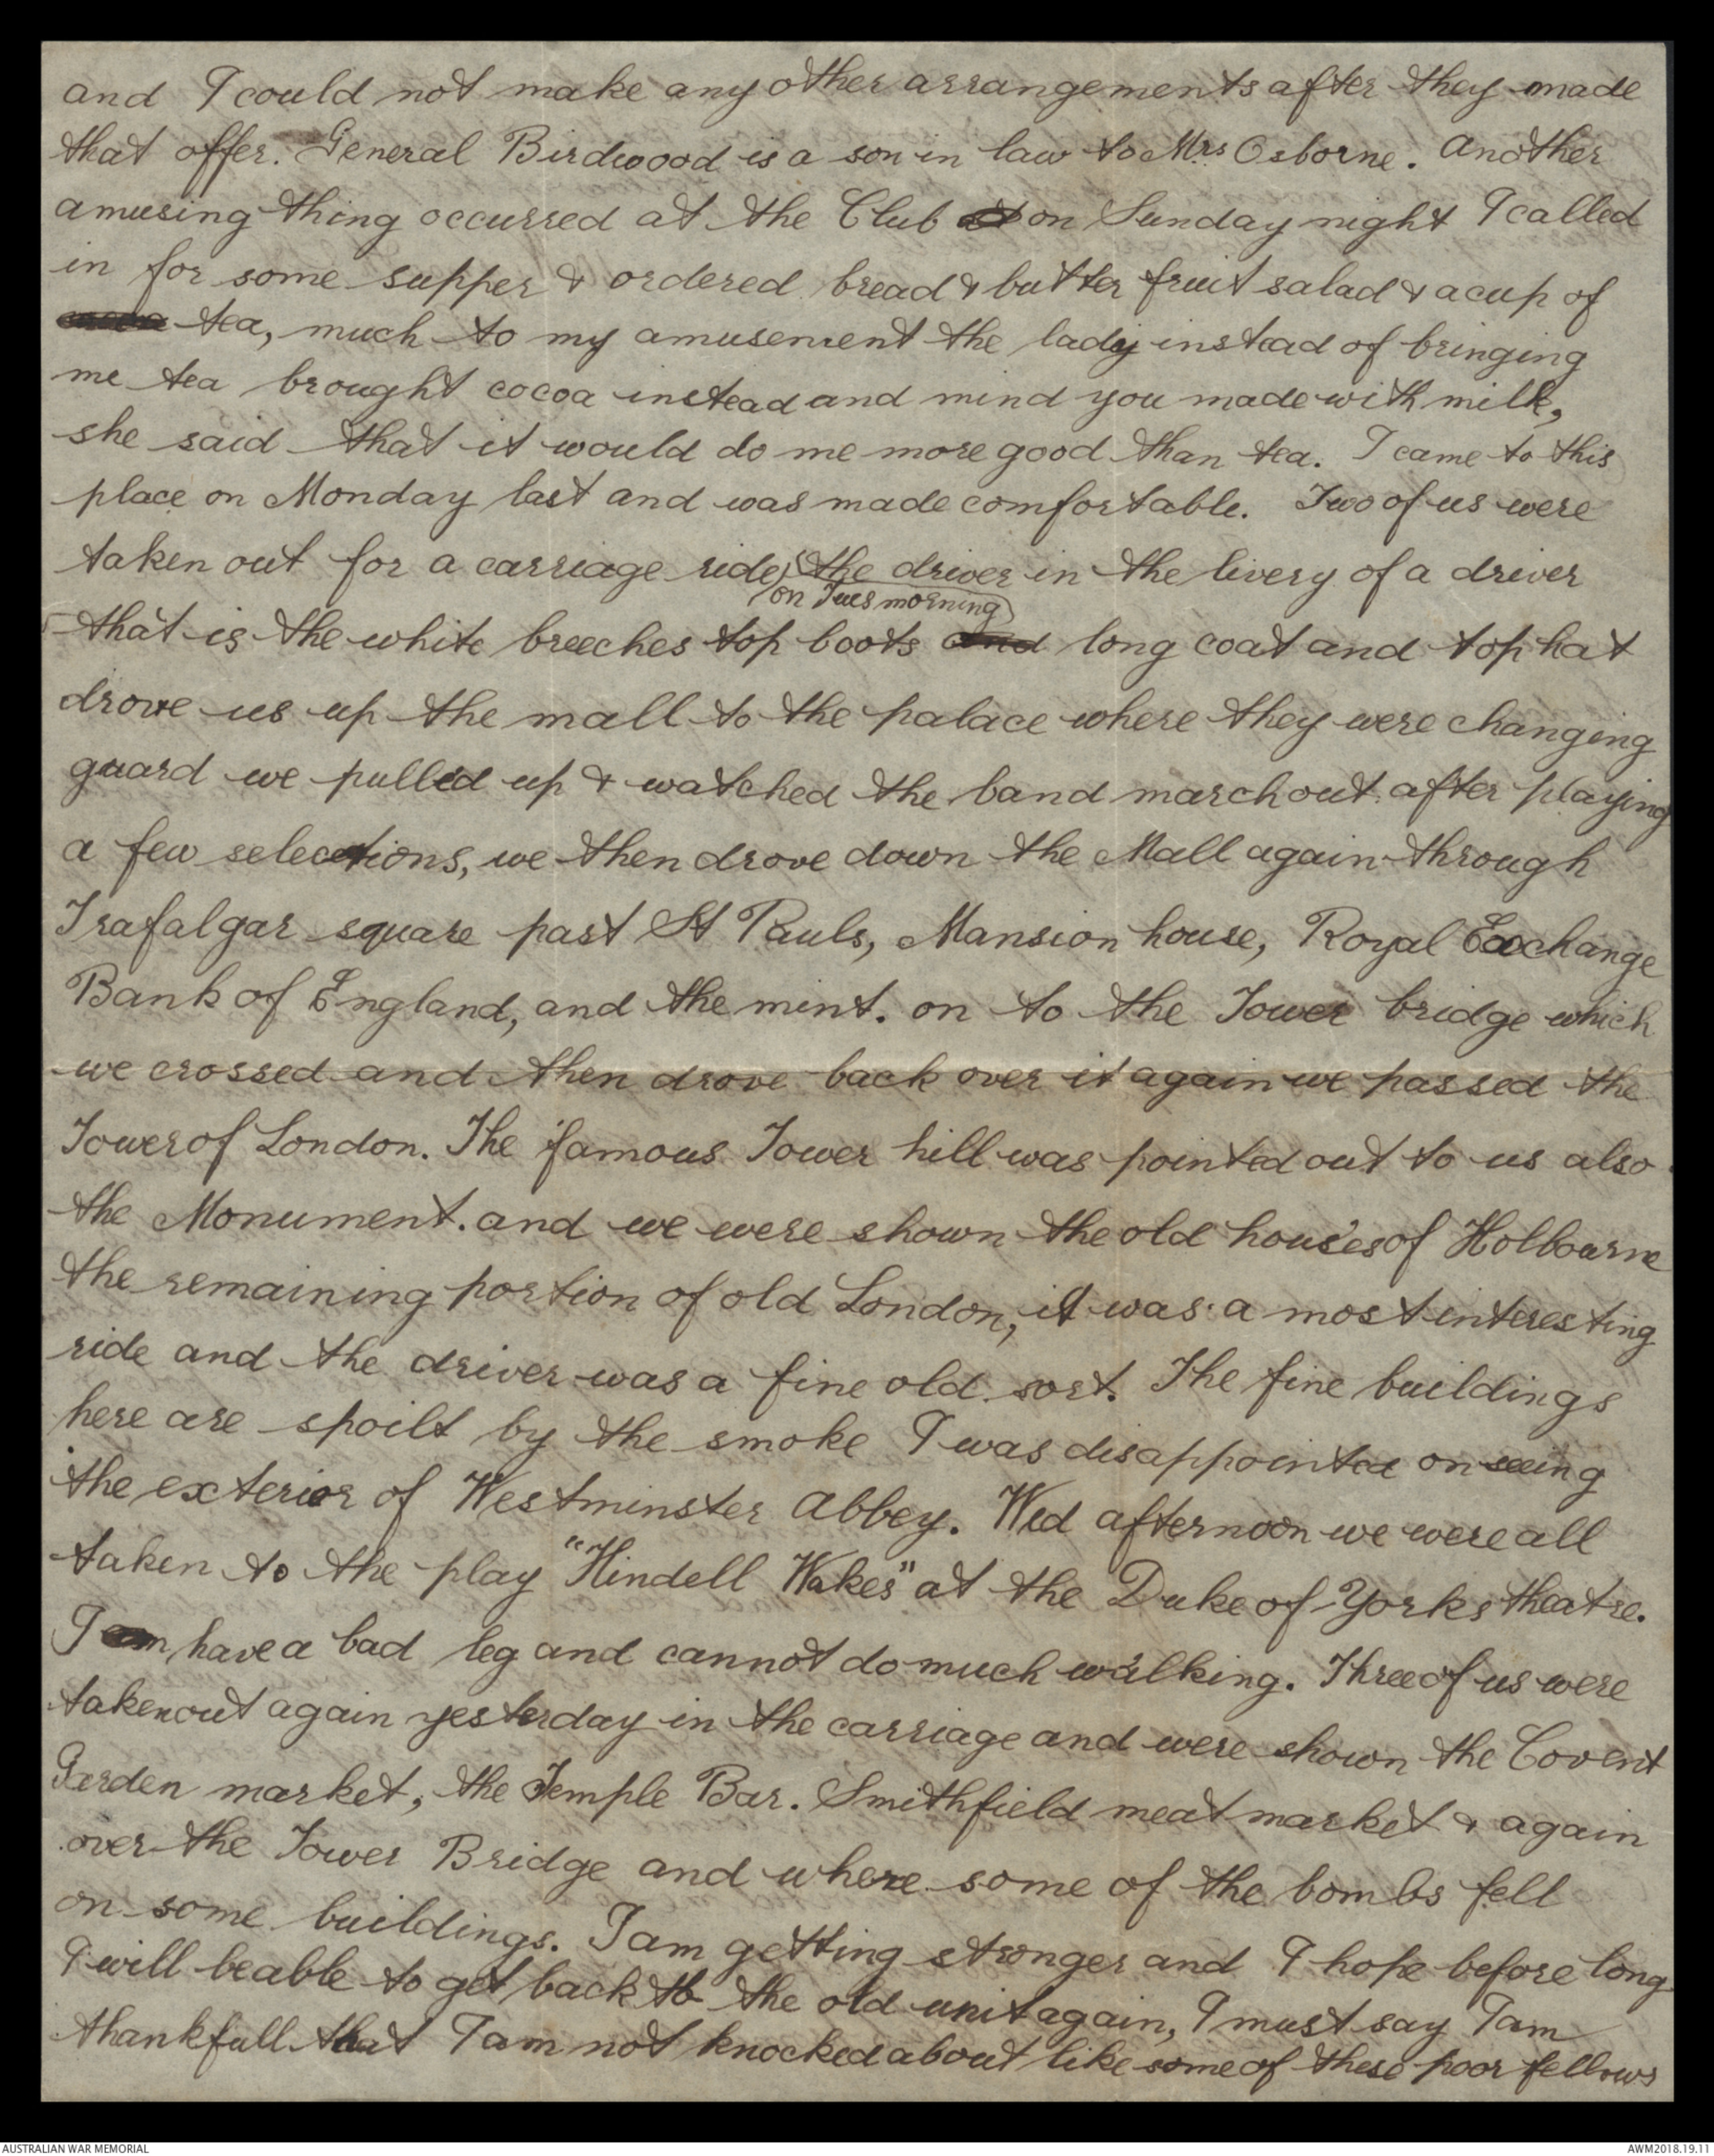 and I could not make any other arrangements after they made
that offer. General Birdwood is a son in law to Mrs Osborne. Another
amusing thing occurred at the Club at on Sunday night I called
in for some supper & ordered bread & butter fruit salad & a cup of
cocoa tea, much to my amusement the lady instead of bringing
me tea brought cocoa instead and mind you made with milk,
she said that it would do me more good than tea. I came to this
place on Monday last and was made comfortable. Two of us were
taken out for a carriage ride, (the driver in the livery of a driver
on Tues morning
that is the white breeches top boots and long coat and top hat
drove us up the mall to the palace where they were changing
guard we pulled up & watched the band march out after playing
a few selections, we then drove down the Mall again through
Trafalgar square past St Pauls, Mansion house, Royal Exchange
Bank of England, and the mint. on to the Tower bridge which
we crossed and then drove back over it again we passed the
Tower of London. The famous Tower hill was pointed out to us also
the Monument. and we were shown the old houses of Holbourne
the remaining portion of old London, it was a most interesting
ride and the driver was a fine old sort. The fine buildings
here are spoilt by the smoke I was disappointed on seeing
the exterior of Westminster Abbey. Wed afternoon we were all
taken to the play "Hindell Wakes" at the Duke of Yorks theatre.
I am have a bad leg and cannot do much walking. Three of us were
taken out again yesterday in the carriage and were shown the Covent
Garden market, the Temple Bar. Smithfield meat market & again
over the Tower Bridge and where some of the bombs fell
on some buildings. I am getting stronger and I hope before long
I will be able to get back to the old unit again, I must say I am
thankfull that I am not knocked about like some of these poor fellows
AUSTRALIAN WAR MEMORIAL
AWM2018.19.11